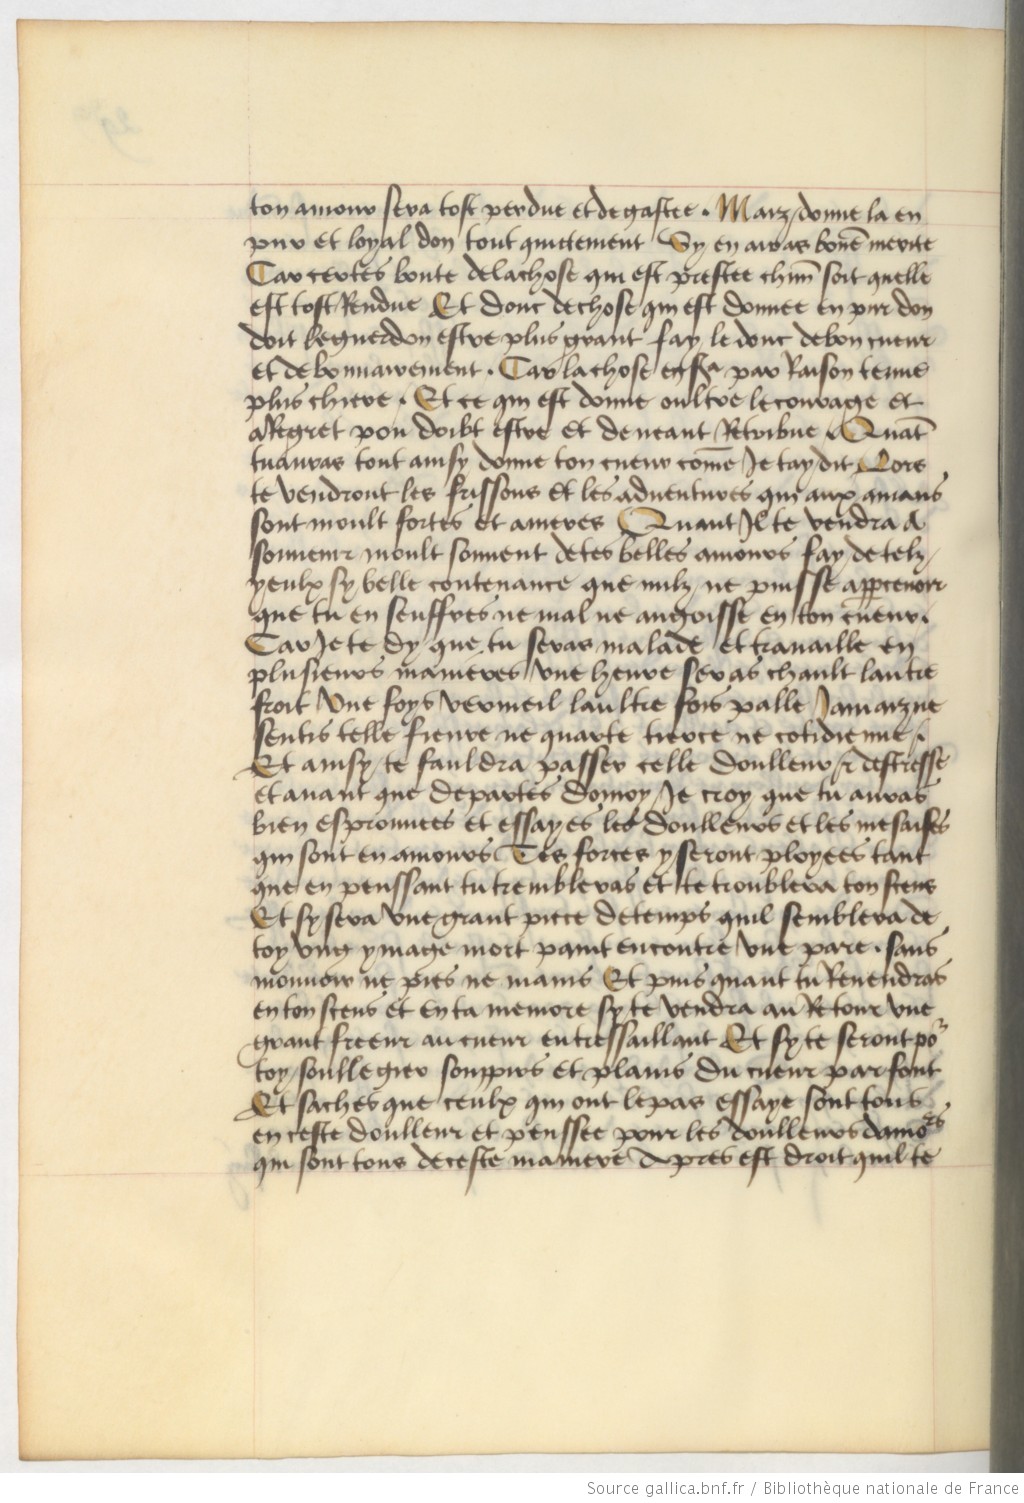 ton amour sera tost perdue et degastee . Maiz donne la en
pur et loyal don tout quictement Sy en auras bonē merite
Car certes bonte de la chose qui est prestee chūn soit quelle
est tost Rendue Et donc de chose qui est donnee en pur don
doit le guerdon estre plus grant fay le donc de bon cueur
et debonnairement . Car la chose en sa par Raison tenue
plus chiere . Et ce qui est donne oultre le courage et
a Regret pou doibt estre et de neant Retribue . Quāt
tu auras tout ainsy donne ton cueur comē Je tay dit Lors
te vendront les frissons et les aduentures qui aux amans
sont moult fortes et ameres Quant Il te vendra A
souuenir moult souuent de tes belles amours fay de telz
yeulx sy belle contenance que nulz ne puisse appceuoir
que tu en seuffres ne mal ne angoisse en ton cueur .
Car Je te dy que tu seras malade et trauaille en
plusieurs manieres vne heure seras chault lautre
froit Vne foys vermeil laultre fois palle Jamaiz ne
sentis telle fieure ne quarte tierce ne cotidienne .
Et ainsy te fauldra passer celle doulleur & destresse
et auant que departes de moy Je croy que tu auras
bien esprouuees et essayes les doulleurs et les mesaises
qui sont en amours Tes forces y seront ployees tant
que en penssant tu trembleras et te troublera ton scens
Et sy sera vne grant piece de temps quil semblera de
toy vng ymage mort paint encontre vne pare . sans
mouuoir ne pies ne mains Et puis quant tu Reuendras
en ton scens et en ta memore sy te vendra au Retour vne
grant freeur au cueur en tressaillant Et sy te seront po~
toy soullegier souppirs et plains du cueur parfont
Et saches que ceulx qui ont le pas essaye sont tous
en ceste doulleur et penssee pour les doulleurs damo~rs
qui sont tous de ceste maniere Apres est droit quil te
Source gallica.bnf.fr / Bibliothèque nationale de France